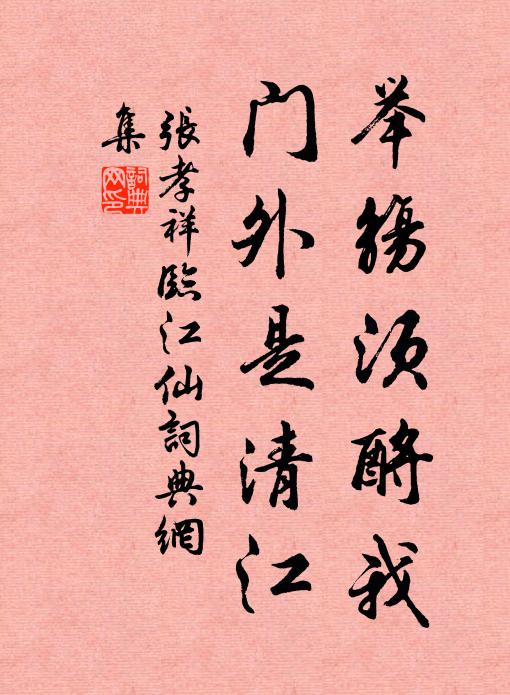 举觞须酹我
门外是清江
張孝祥臨江仙詞典網
集
詞典
网印